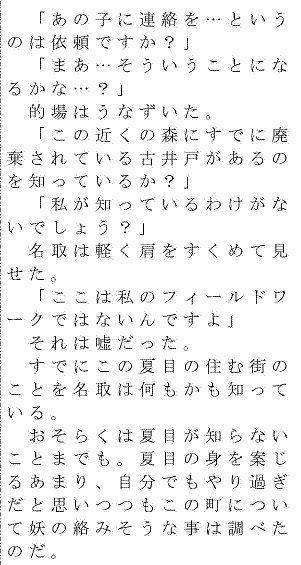 「あの子に連絡を…という
のは依頼ですか？」
「まあ…そういうことにな
るかな…？」
的場はうなずいた。
「この近くの森にすでに廃
棄されている古井戸があるの
を知っているか？」
「私が知っているわけがな
いでしょう？」
名取は軽く肩をすくめて見
せた。
「ここは私のフィールドワ
ークではないんですよ」
それは嘘だった。
すでにこの夏目の住む街の
ことを名取は何もかも知って
いる。
おそらくは夏目が知らない
ことまでも。夏目の身を案じ
るあまり、自分でもやり過ぎ
だと思いつつもこの町につい
て妖の絡みそうな事は調べた
のだ。